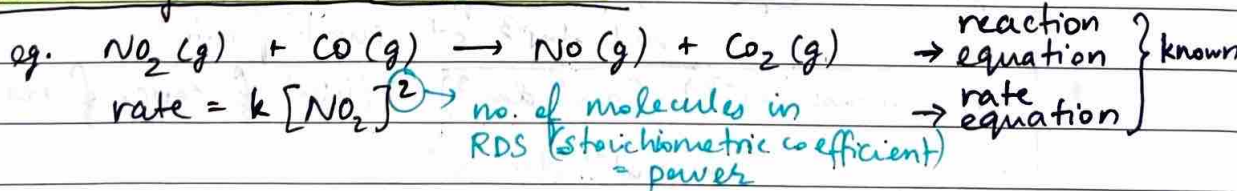 eg. NO₂ (g) + CO (g) → NO (g) + CO₂ (g) → reaction equation } known
rate = k [NO₂]² → no. of molecules in RDS (stoichiometric coefficient) = power → rate equation